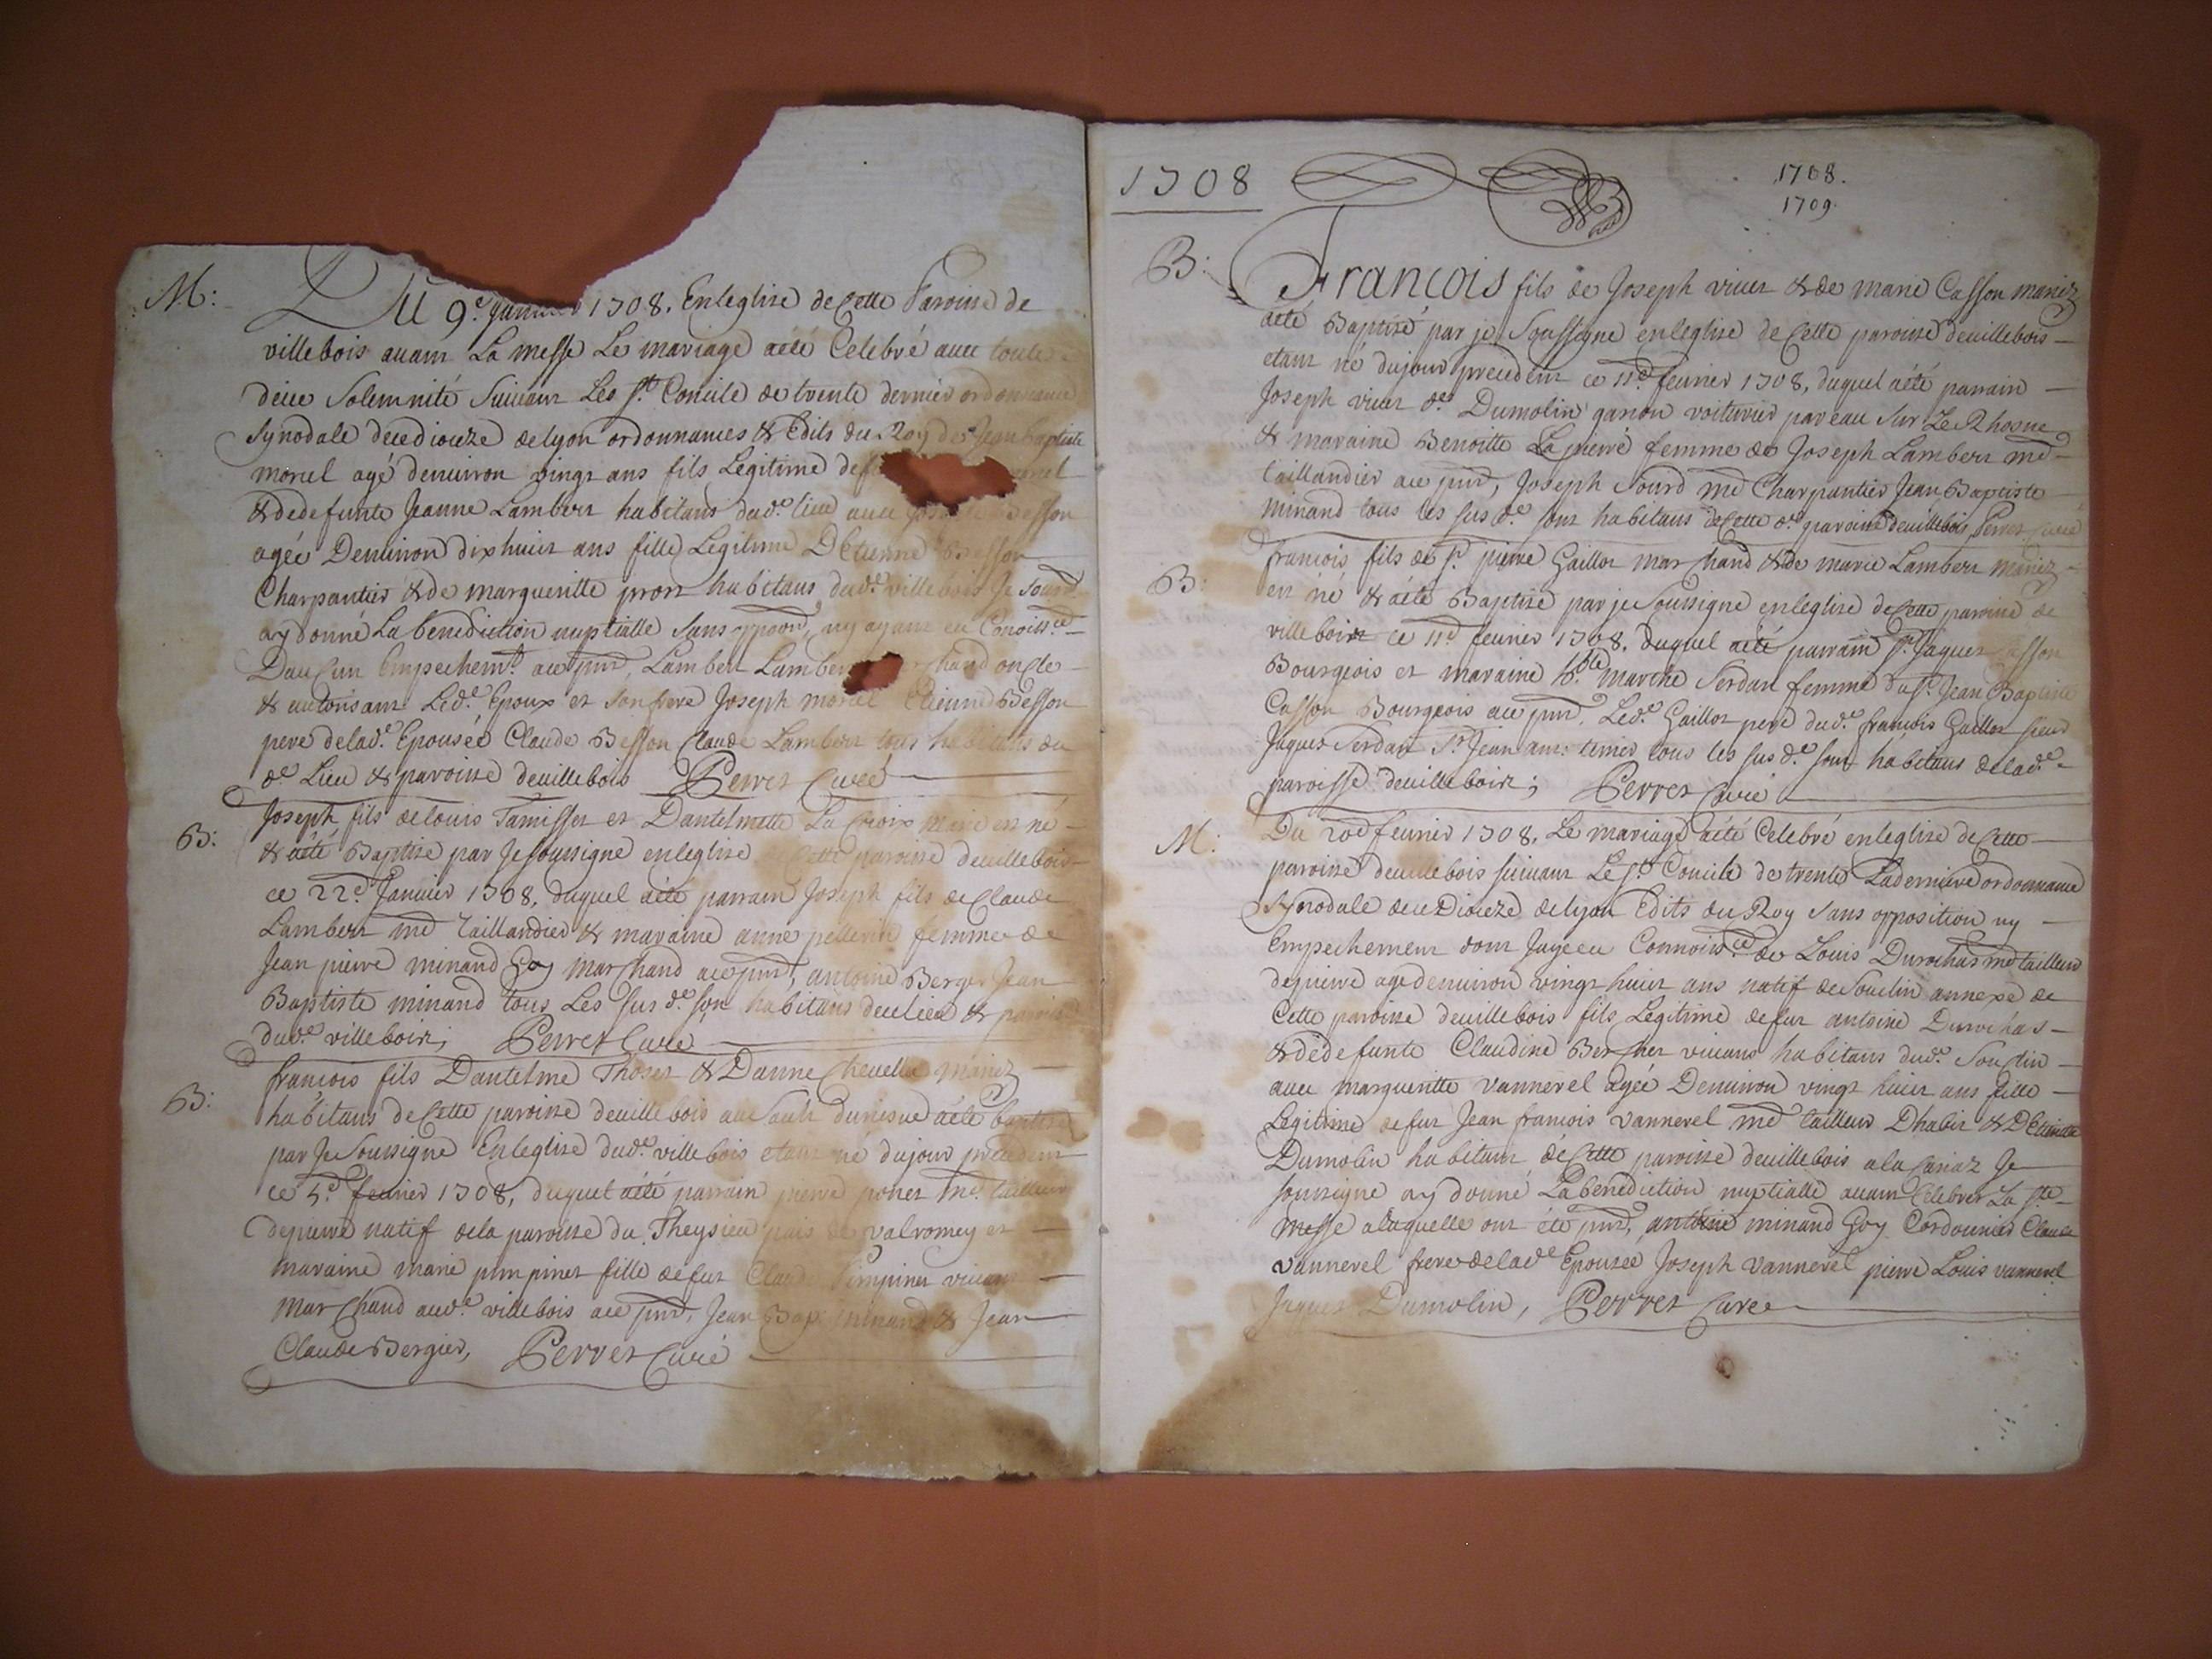 M:
Du 9e. Janvier 1708. En leglise de Cette Paroisse de
villebois auant La messe Le mariage aété Celebré auec toute
deue Solemnité Suiuant Les st. Concile de trente dernier ordonnance
Synodale decedioceze delyon ordonnances & Edits du Roy de Jean baptiste
morel agé denuiron vingt ans fils Legitime de
& dedefunte Jeanne Lambert habitans dud.e lieu auec Besson
agée Denuiron dixhuict ans fille Legitime D'Etienne Besson
Charpantier & de margueritte prost habitans dud.e villebois Je soussd.
ay donné La benediction nuptialle Sans oppoon, ny ayant eu Conoissce.
Daucun Empechemt. ace pnt, Lambert Lambert marchand oncle
& autorisant Led.e Epoux et son frere Joseph morel Etienne Besson
pere delad.e Epousée Claude Besson Claude Lambert tous habitans du
d.e Lieu & paroisse deuillebois Perret Curé
B:
Joseph fils delouis Tamisset et Dantelmette La Croix mariez est né
& aété Baptisé par Je soussigné enleglise de Cette paroisse deuillebois
ce 22e. Janvier 1708, duquel aété parrain Joseph fils de Claude
Lambert md Taillandier & maraine anne pellerin femme de
Jean pierre minand Goy marchand ace pnt, antoine Berger Jean
Baptiste minand tous Les sus d.e son habitans deulieu & paroisse
dud.e villebois; Perret Curé
B:
francois fils Dantelme Thoset & Danne Cheuellu mariez
habitans de Cette paroisse deuillebois au Sault durosne aété baptisé
par Je Soussigné Enleglise dud.e villebois etant né dujour precedent
ce 5e. feurier 1708, duquel aété parrain pierre ponet md. tailleur
depierre natif dela paroisse du Theysieu pais de valromey et
maraine marie pimpinet fille defut Claude Pimpinet viuant
marchand aud.e villebois ace pnt, Jean Bap. minand & Jean
Claude Bergier, Perret Curé
1708
1708.
1709.
B:
Francois fils de Joseph viuet & de marie Casson mariez
aété Baptisé par je Soussigné enleglise de Cette paroisse deuillebois
etant né dujour precedent ce 11e feurier 1708, duquel aété parrain
Joseph viuet d.e Dumolin garçon voiturier par eau Sur Le Rhosne
& maraine Benoitte La pierre femme de Joseph Lambert md
taillandier ace pnt, Joseph Sourd md Charpantier Jean Baptiste
minand tous les sus d.e sont habitans deCette d.e paroisse deuillebois Perret Curé
B:
francois fils de sr. pierre Gaillot marchand & de marie Lambert mariez
est né & aété Baptisé par je Soussigné enleglise deCette paroisse de
villebois ce 11e feurier 1708. duquel aété parrain sr. Jaques Casson
Bourgeois et maraine marthe Serdan femme dusr. Jean Baptiste
Casson Bourgeois ace pnt, Led.e Gaillot pere dud.e francois Gaillot sieur
Jaques Serdan tous les sus d.e sont habitans delad.e
paroisse deuillebois; Perret Curé
M:
Du 20e feurier 1708. Le mariage aété Celebré enleglise de Cette
paroisse deuillebois suiuant Le st Concile de trente Laderniere ordonnance
Synodale dece Dioceze delyon Edits du Roy Sans opposition ny
Empechement dont Jaye eu Connoissce. de Louis Durochas md tailleur
depierre agé denuiron vingt huict ans natif deSouclin annexe de
Cette paroisse deuillebois fils Legitime defut antoine Durochas
& dedefunte Claudine Berthet viuans habitans dud.e Souclin
auec margueritte vannerel agée Denuiron vingt huict ans fille
Legitime defut Jean francois vannerel md tailleur Dhabit & D'Etiennette
Dumolin habitant de Cette paroisse deuillebois ala Je
soussigné ay donné La benediction nuptialle auant Celebrer La ste.
messe alaquelle ont été pnt, antoine minand Goy Cordonnier Claude
vannerel frere delad.e Epousée Joseph vannerel pierre Louis vannerel
Jaques Dumolin, Perret Curé